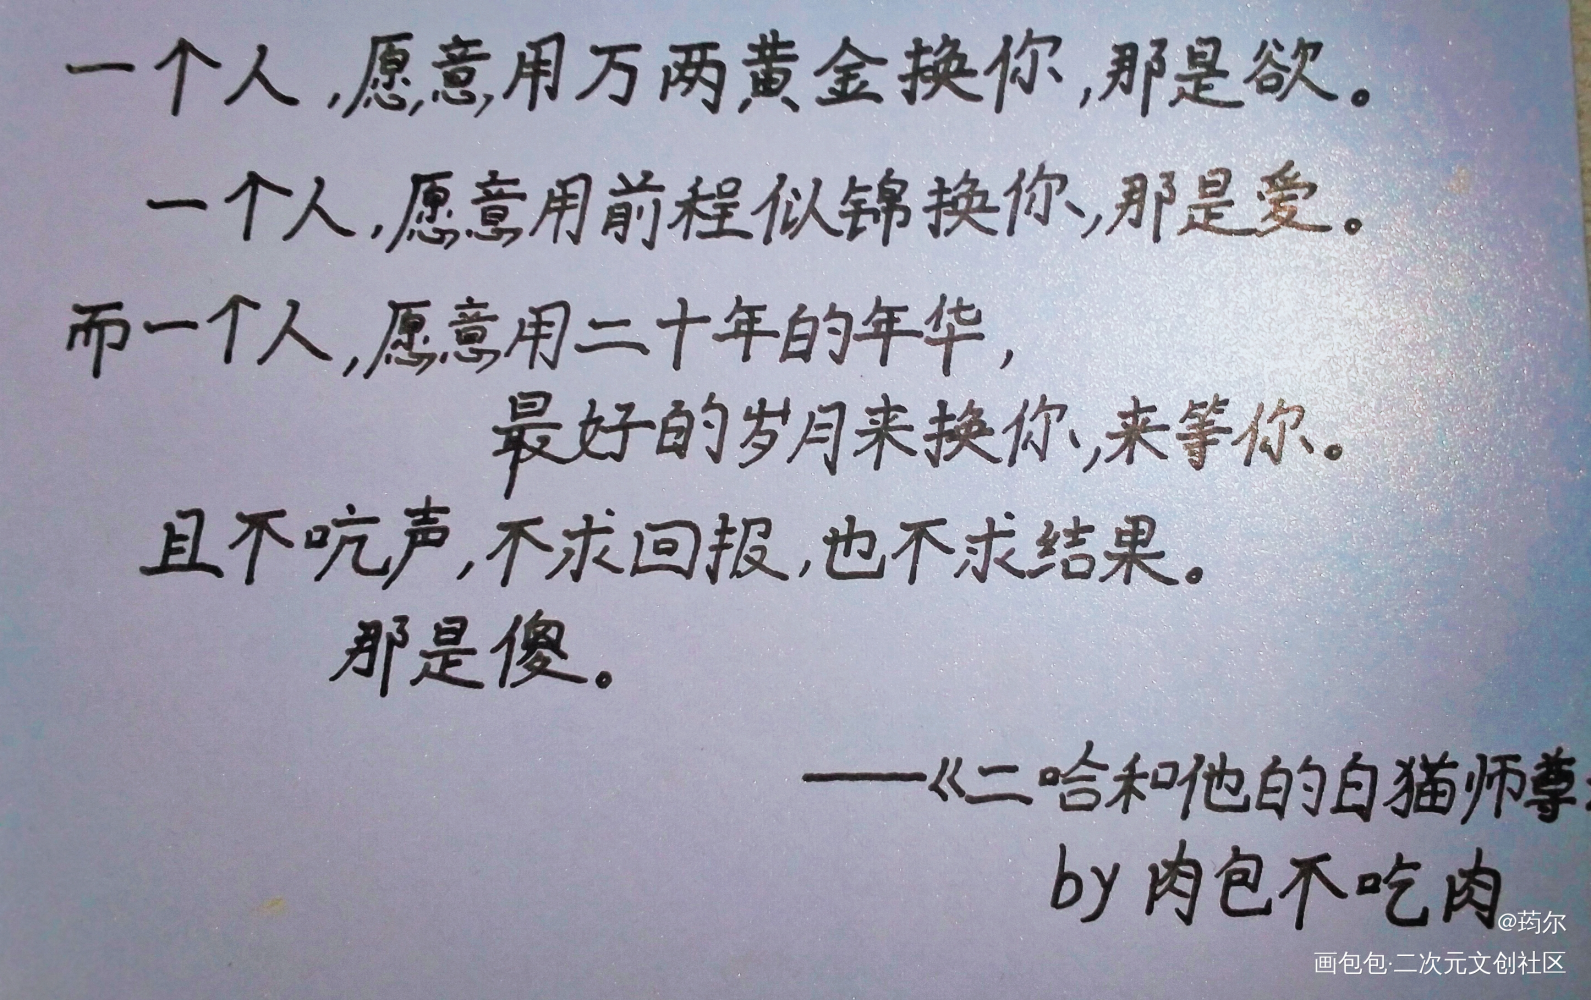 一个人,愿意用万两黄金换你,那是欲。
一个人,愿意用前程似锦换你,那是爱。
而一个人,愿意用二十年的年华,
最好的岁月来换你,来等你。
且不吭声,不求回报,也不求结果。
那是傻。
——《二哈和他的白猫师尊
by 肉包不吃肉
@荺尔
画包包·二次元文创社区